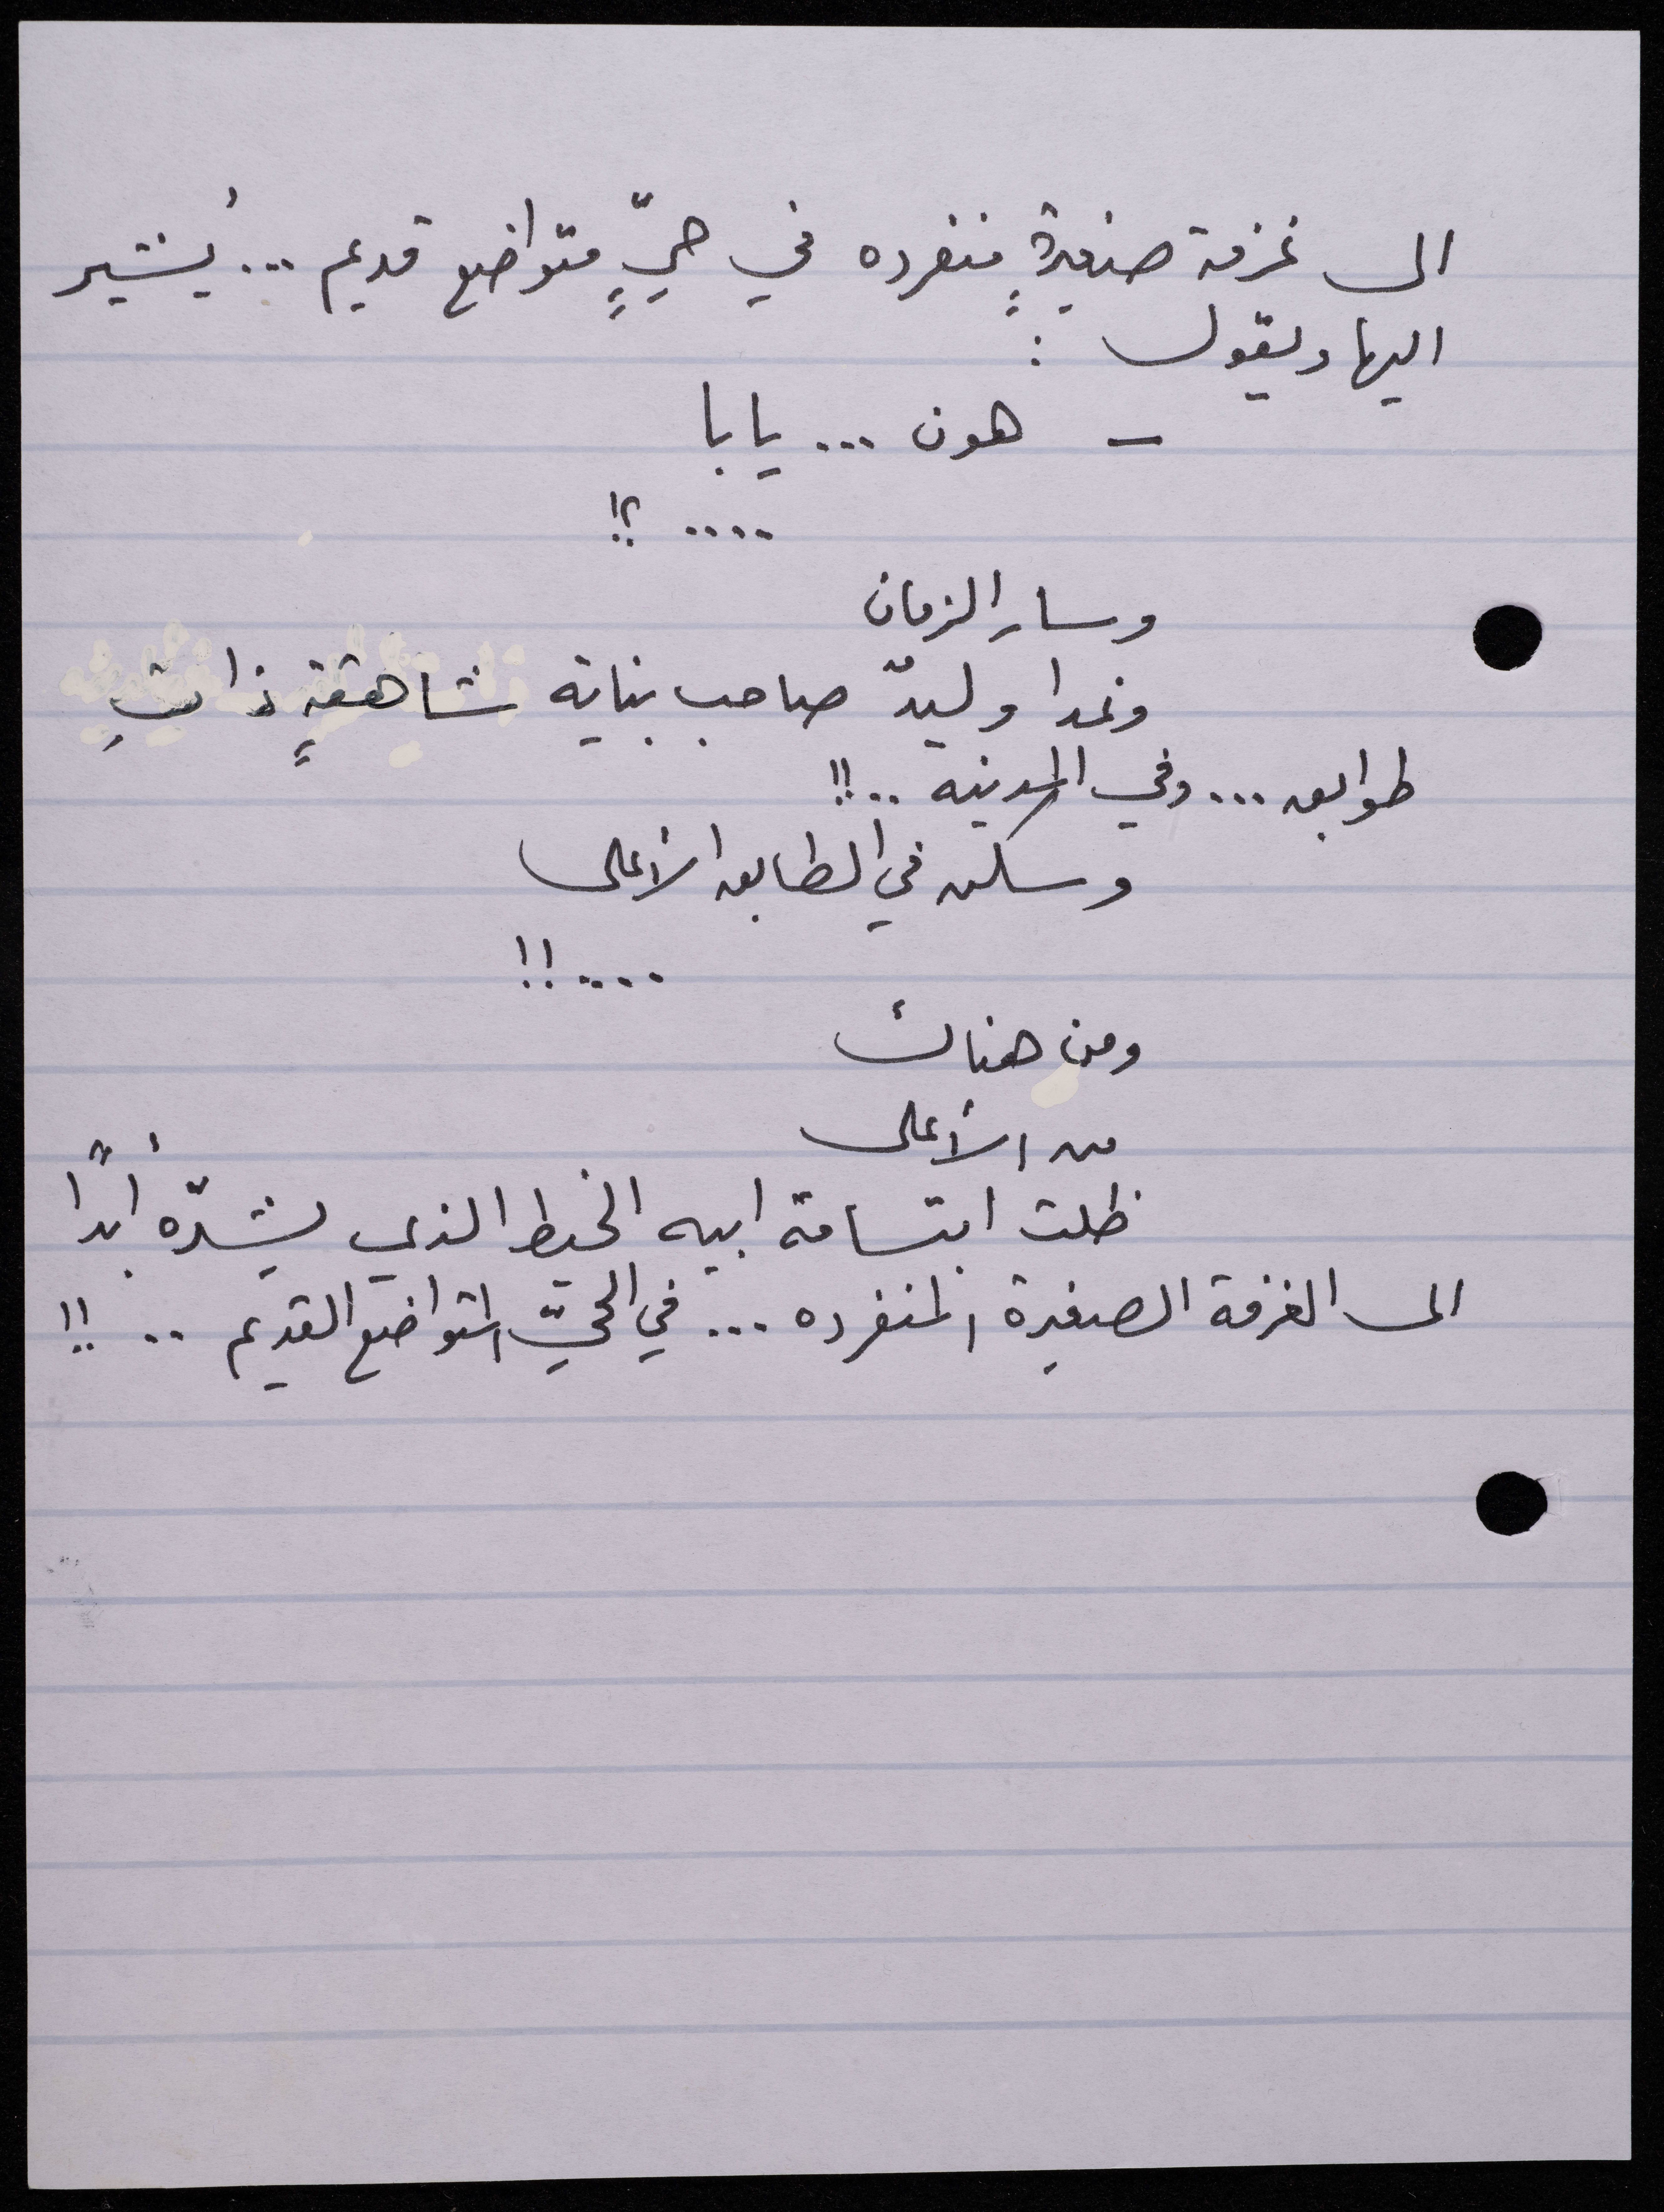 الى غرفة صغيرةٍ منفرده في حيٍّ متواضع قديم ... يُشير
اليها ويقول :
– هون ... يابا
.... ؟!
وسار الزمان
وغدا وليدٌ صاحب بناية شاهقةٍ ذاتِ
طوابق ... وفي المدينه ..!!
وسكن في الطابق الأعلى
....!!
ومن هناك
من الأعلى
ظلت ابتسامة ابيه الخيط الذي يشدّهُ ابدًا
الى الغرفة الصغيرة المنفرده ... في الحيّ المتواضع القديم .. !!